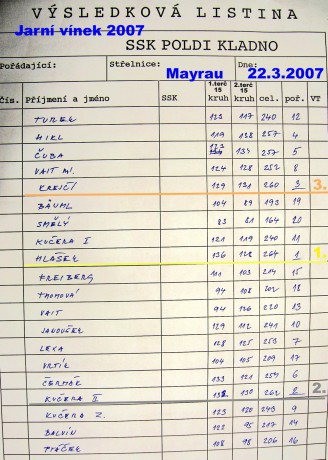 VÝSLEDKOVÁ LISTINA
Jarní vínek 2007
SSK POLDI KLADNO
Pořádající: Střelnice: Dne:
Mayrau 22.3.2007
Čís. Příjmení a jméno SSK 1.terč 15 kruh 2.terč 15 kruh cel. poř. VT
TUREK 123 117 240 12
HIKL 119 138 257 4
ČUBA 123 134 257 5
VAIT ml. 124 128 252 8
KREJČÍ 129 131 260 3 3.
BÄUML 104 89 193 19
SMĚLÝ 83 81 164 20
KUČERA I 121 119 240 11
MLÁŠEK 136 128 264 1 1.
FREIBERG 111 103 214 15
94 108 202 18
VAIT 94 126 220 13
JANOUŠEK 129 112 241 10
LEXA 128 125 253 7
VRTÍK 104 105 209 17
ČERMÁK 133 121 254 6
KUČERA II 132 130 262 2 2.
KUČERA Z. 123 120 243 9
BALVÍN 122 95 217 14
108 98 206 16